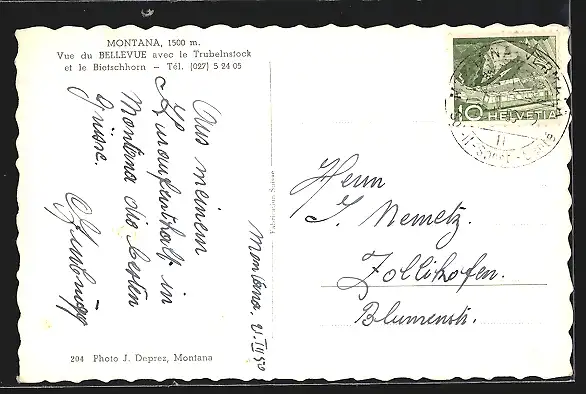 MONTANA, 1500 m.
Vue du BELLEVUE avec le Trubelnstock
et le Bietschhorn – Tél. (027) 5 24 05
Aus meinem
Kuraufenthalt in
Montana die besten
Grüsse.
Montana. V. III 50
204 Photo J. Deprez, Montana
Fabrication Suisse
10 HELVETIA
Herrn
J. Nemetz.
Zollikofen.
Blumenstr.